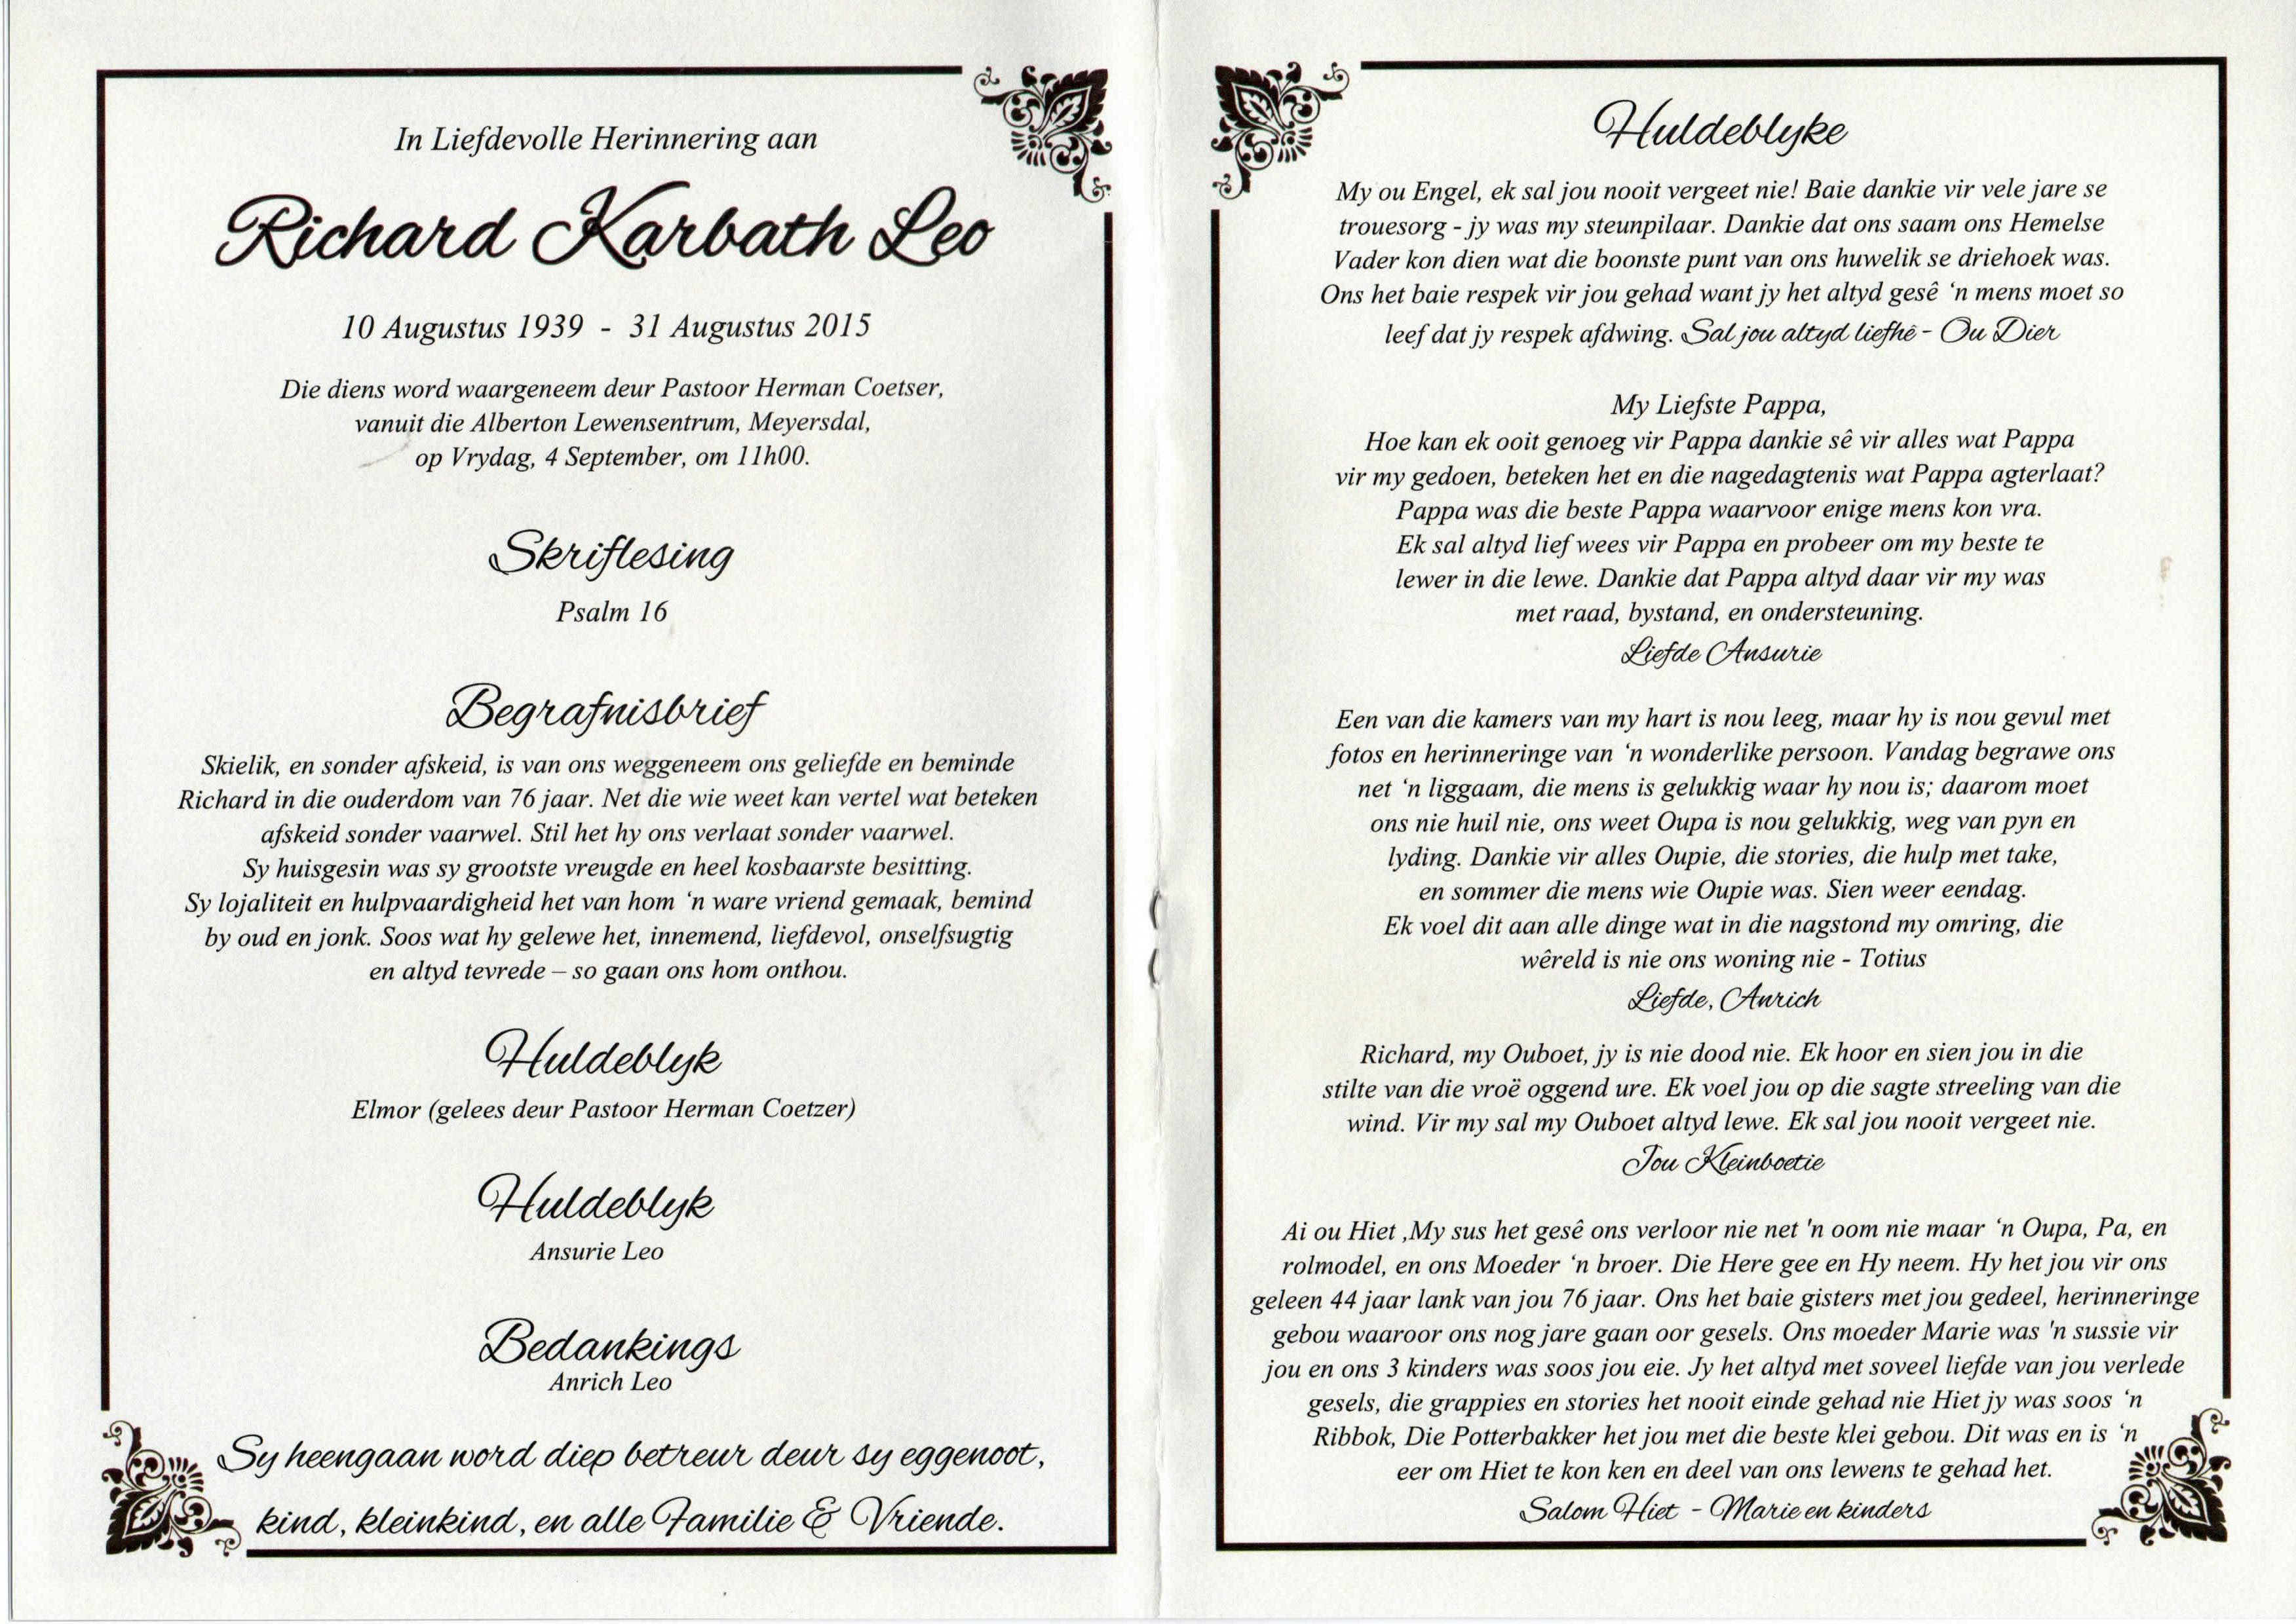 In Liefdevolle Herinnering aan
Richard Karbath Leo
10 Augustus 1939 - 31 Augustus 2015
Die diens word waargeneem deur Pastoor Herman Coetser,
vanuit die Alberton Lewensentrum, Meyersdal,
op Vrydag, 4 September, om 11h00.
Skriflesing
Psalm 16
Begrafnisbrief
Skielik, en sonder afskeid, is van ons weggeneem ons geliefde en beminde
Richard in die ouderdom van 76 jaar. Net die wie weet kan vertel wat beteken
afskeid sonder vaarwel. Stil het hy ons verlaat sonder vaarwel.
Sy huisgesin was sy grootste vreugde en heel kosbaarste besitting.
Sy lojaliteit en hulpvaardigheid het van hom ‘n ware vriend gemaak, bemind
by oud en jonk. Soos wat hy gelewe het, innemend, liefdevol, onselfsugtig
en altyd tevrede – so gaan ons hom onthou.
Huldeblyk
Elmor (gelees deur Pastoor Herman Coetzer)
Huldeblyk
Ansurie Leo
Bedankings
Anrich Leo
Sy heengaan word diep betreur deur sy eggenoot,
kind, kleinkind, en alle Familie & Vriende.
Huldeblyke
My ou Engel, ek sal jou nooit vergeet nie! Baie dankie vir vele jare se
trouesorg - jy was my steunpilaar. Dankie dat ons saam ons Hemelse
Vader kon dien wat die boonste punt van ons huwelik se driehoek was.
Ons het baie respek vir jou gehad want jy het altyd gesê ‘n mens moet so
leef dat jy respek afdwing. Sal jou altyd liefhê - Ou Dier
My Liefste Pappa,
Hoe kan ek ooit genoeg vir Pappa dankie sê vir alles wat Pappa
vir my gedoen, beteken het en die nagedagtenis wat Pappa agterlaat?
Pappa was die beste Pappa waarvoor enige mens kon vra.
Ek sal altyd lief wees vir Pappa en probeer om my beste te
lewer in die lewe. Dankie dat Pappa altyd daar vir my was
met raad, bystand, en ondersteuning.
Liefde Ansurie
Een van die kamers van my hart is nou leeg, maar hy is nou gevul met
fotos en herinneringe van ‘n wonderlike persoon. Vandag begrawe ons
net ‘n liggaam, die mens is gelukkig waar hy nou is; daarom moet
ons nie huil nie, ons weet Oupa is nou gelukkig, weg van pyn en
lyding. Dankie vir alles Oupie, die stories, die hulp met take,
en sommer die mens wie Oupie was. Sien weer eendag.
Ek voel dit aan alle dinge wat in die nagstond my omring, die
wêreld is nie ons woning nie - Totius
Liefde, Anrich
Richard, my Ouboet, jy is nie dood nie. Ek hoor en sien jou in die
stilte van die vroë oggend ure. Ek voel jou op die sagte streeling van die
wind. Vir my sal my Ouboet altyd lewe. Ek sal jou nooit vergeet nie.
Jou Kleinboetie
Ai ou Hiet ,My sus het gesê ons verloor nie net 'n oom nie maar ‘n Oupa, Pa, en
rolmodel, en ons Moeder ‘n broer. Die Here gee en Hy neem. Hy het jou vir ons
geleen 44 jaar lank van jou 76 jaar. Ons het baie gisters met jou gedeel, herinneringe
gebou waaroor ons nog jare gaan oor gesels. Ons moeder Marie was 'n sussie vir
jou en ons 3 kinders was soos jou eie. Jy het altyd met soveel liefde van jou verlede
gesels, die grappies en stories het nooit einde gehad nie Hiet jy was soos ‘n
Ribbok, Die Potterbakker het jou met die beste klei gebou. Dit was en is ‘n
eer om Hiet te kon ken en deel van ons lewens te gehad het.
Salom Hiet - Marie en kinders